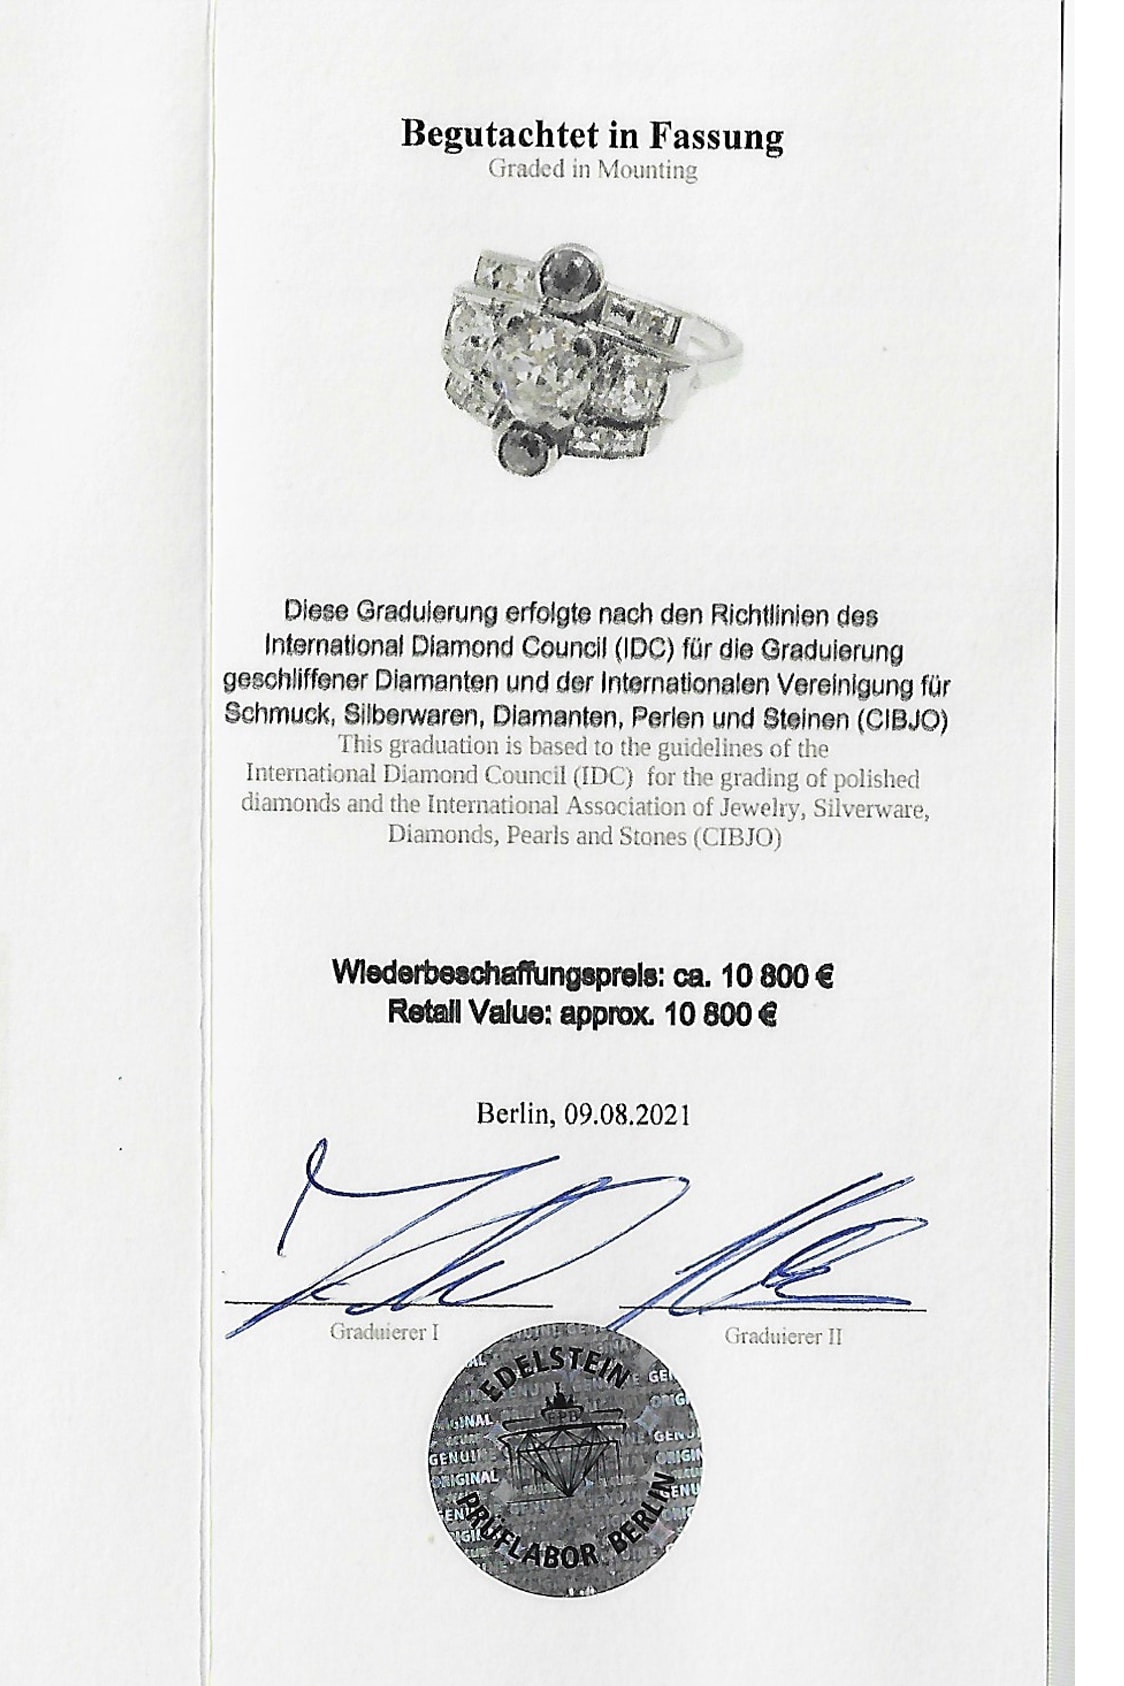 Begutachtet in Fassung
Graded in Mounting
Diese Graduierung erfolgte nach den Richtlinien des
International Diamond Council (IDC) für die Graduierung
geschliffener Diamanten und der Internationalen Vereinigung für
Schmuck, Silberwaren, Diamanten, Perlen und Steinen (CIBJO)
This graduation is based to the guidelines of the
International Diamond Council (IDC) for the grading of polished
diamonds and the International Association of Jewelry, Silverware,
Diamonds, Pearls and Stones (CIBJO)
Wiederbeschaffungspreis: ca. 10 800 €
Retail Value: approx. 10 800 €
Berlin, 09.08.2021
Graduierer I
Graduierer II
EDELSTEIN
EPB
PRÜFLABOR BERLIN
GENUINE
ORIGINAL